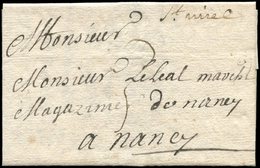 St miel
Monsieur
Monsieur Leleal marcht
Magazinier de nancy
a nancy